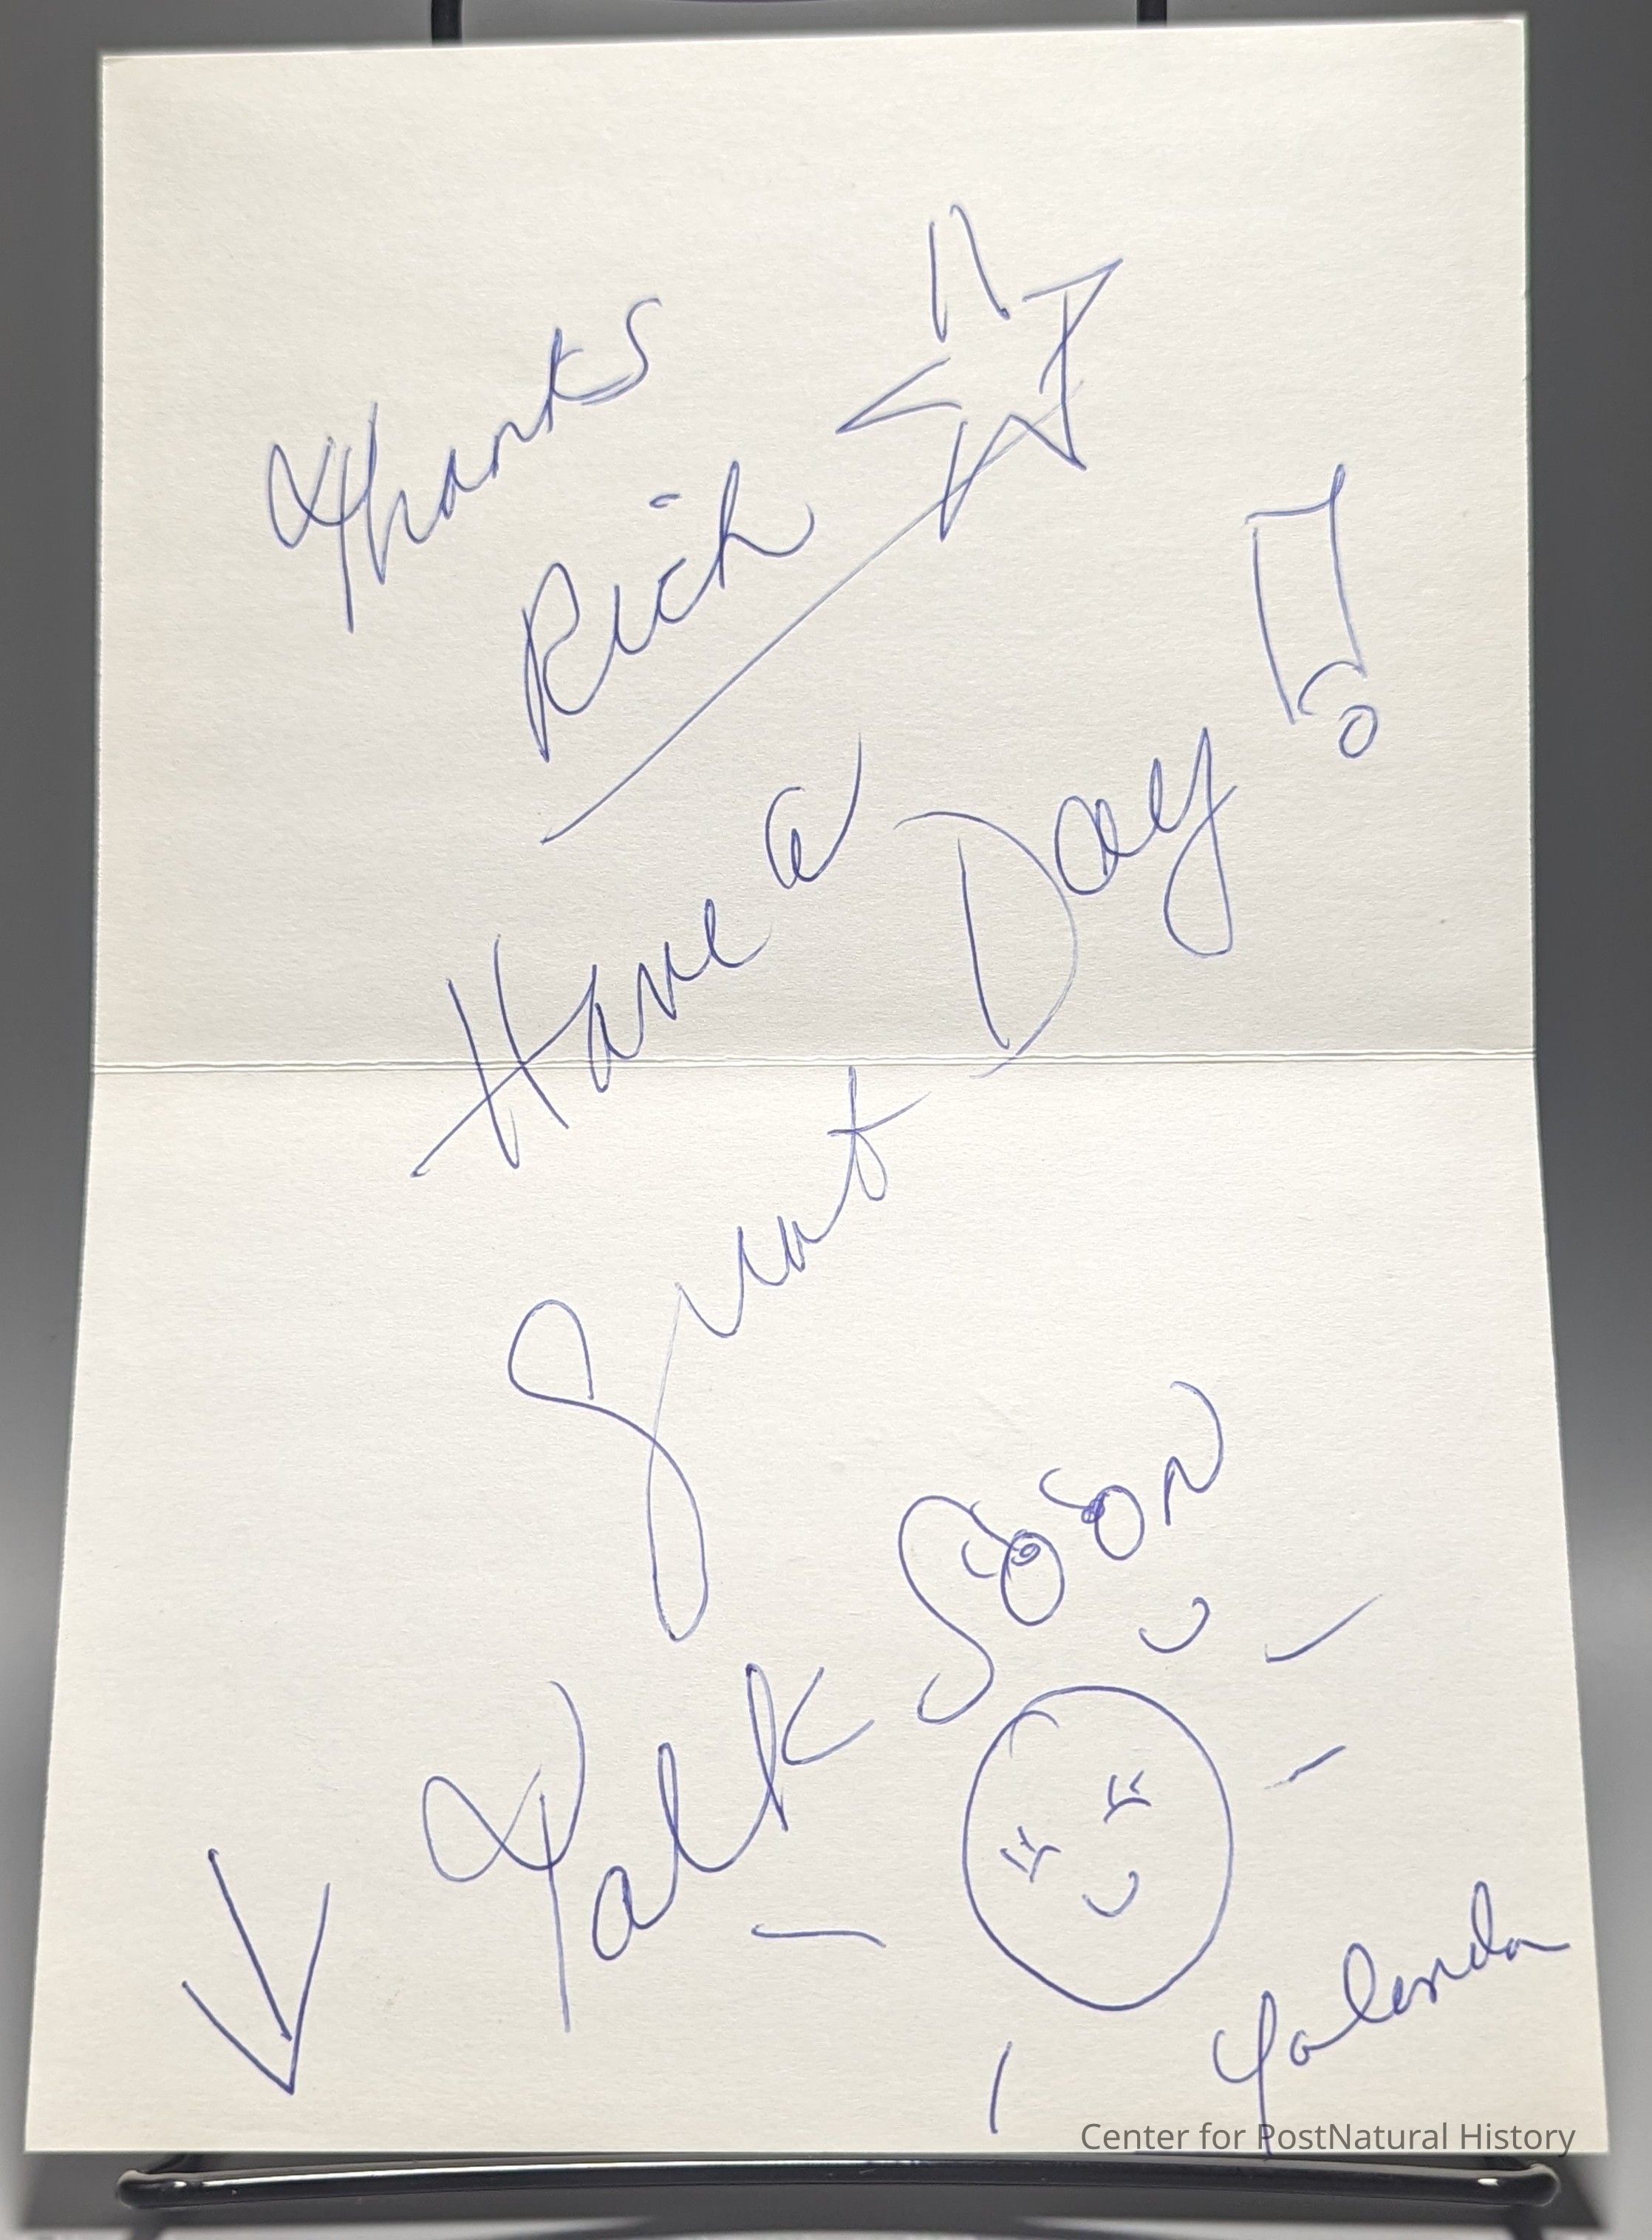 Thanks
Rich
Have a
Great Day!
Talk Soon
Yolonda
Center for PostNatural History